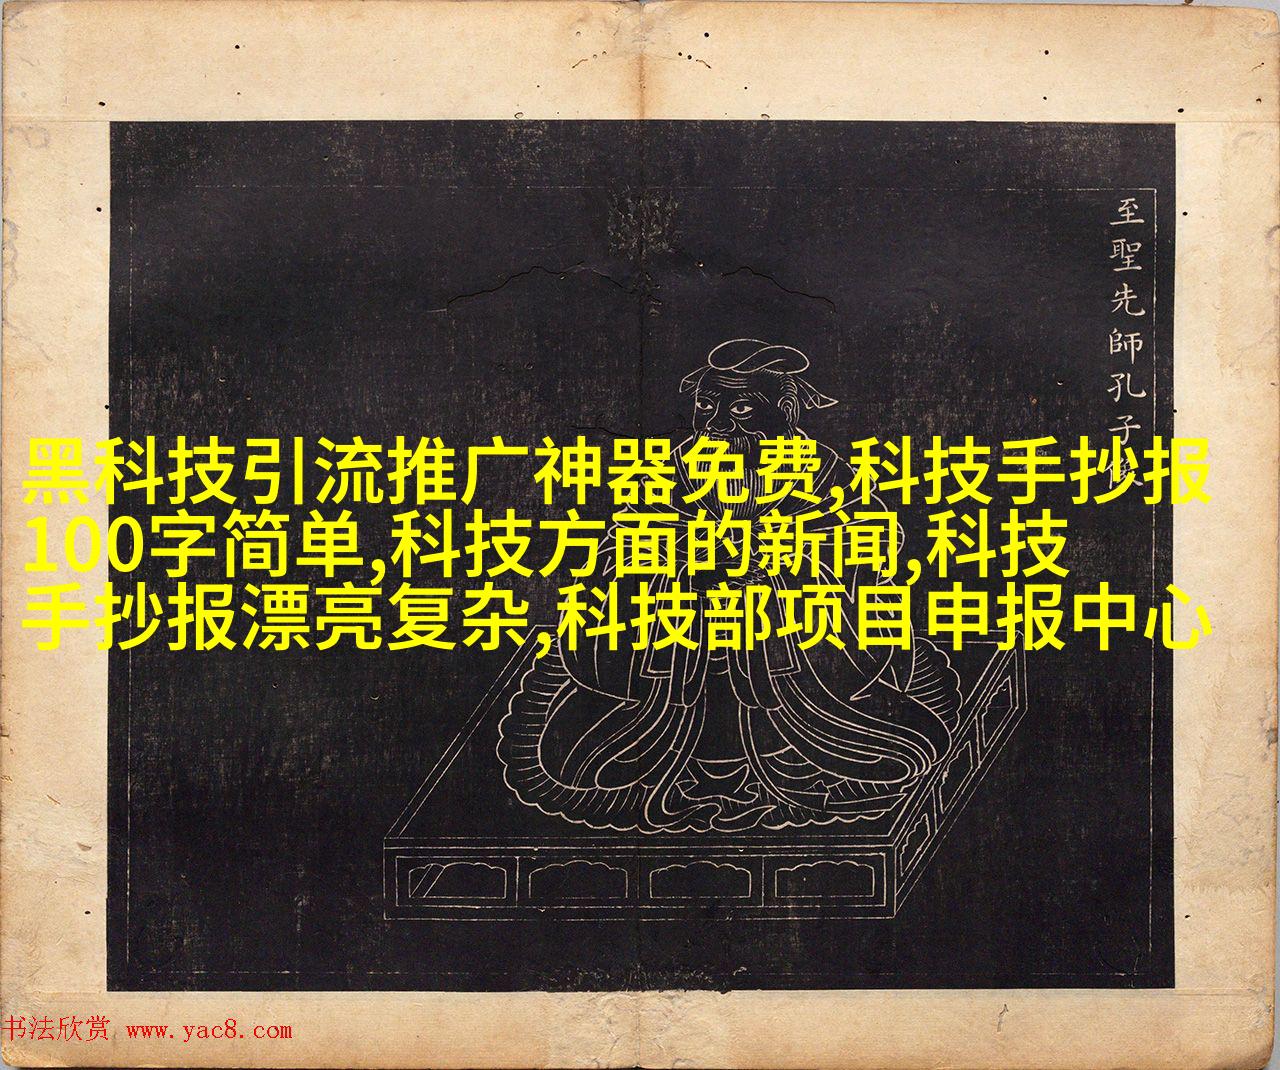 至聖先師孔子像
黑科技引流推广神器免费,科技手抄报
100字简单,科技方面的新闻,科技
手抄报漂亮复杂,科技部项目申报中心
书法欣赏 www.yac8.com